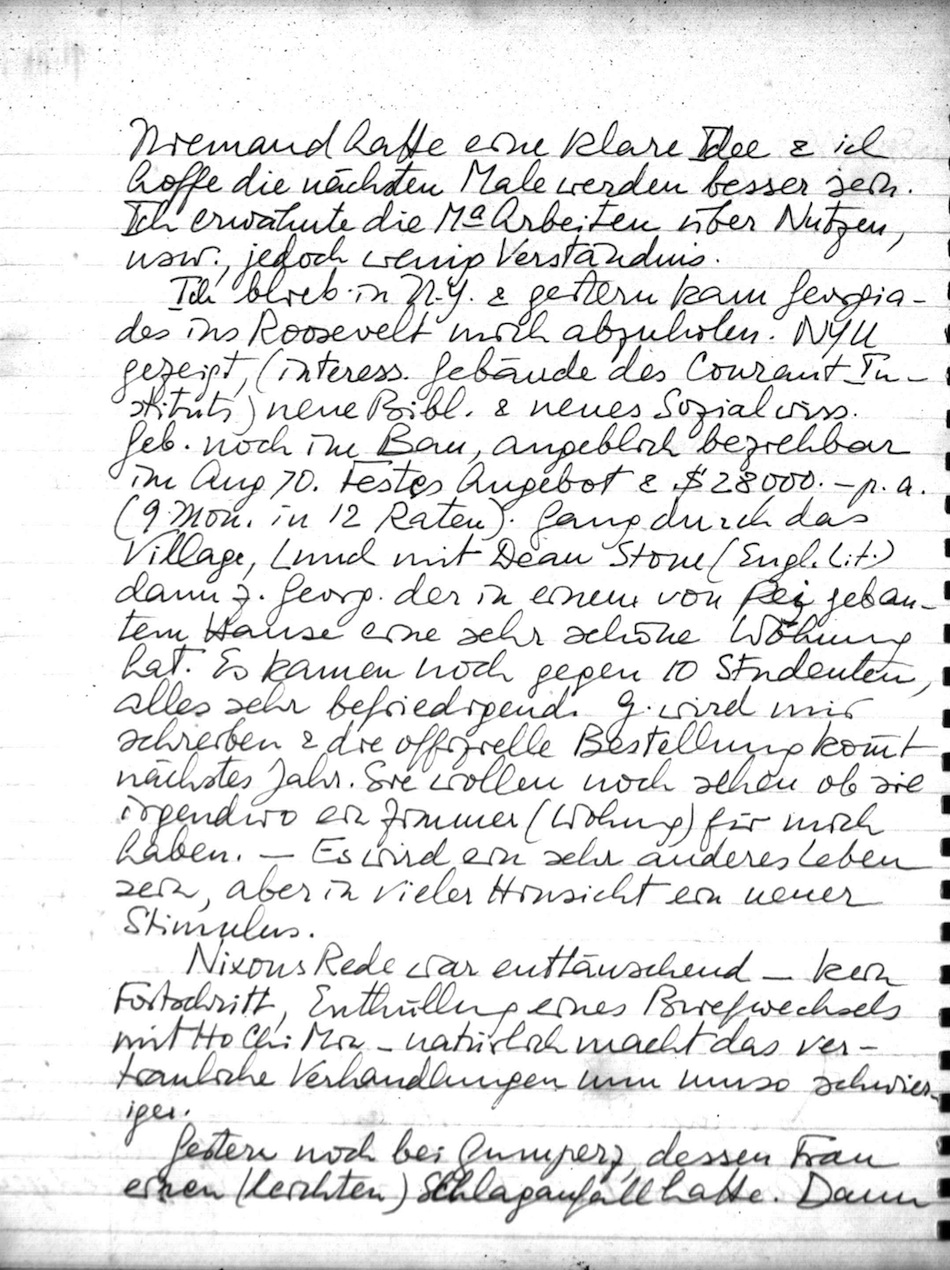 Niemand hatte eine klare Idee & ich
hoffe die nächsten Male werden besser sein.
Ich erwähnte die Ma Arbeiten über Nutzen,
usw., jedoch wenig Verständnis.
Ich blieb in N.Y. & gestern kam Georgia-
des ins Roosevelt mich abzuholen. NYU
gezeigt, (interess. Gebäude des Courant In-
stituts) neue Bibl. & neues Sozialwiss.
Geb. noch im Bau, angeblich beziehbar
im Aug 70. Festes Angebot & $28000.- p.a.
(9 Mon. in 12 Raten). Gang durch das
Village, Lunch mit Dean Stone (Engl. Lit.)
dann z. Georg. der in einem von Pei gebau-
tem Hause eine sehr schöne Wohnung
hat. Es kamen noch gegen 10 Studenten,
alles sehr befriedigend. G. wird mir
schreiben & die offizielle Bestellung kom̄t
nächstes Jahr. Sie wollen noch sehen ob sie
irgendwo ein Zimmer (Wohung) für mich
haben. — Es wird ein sehr anderes Leben
sein, aber in vieler Hinsicht ein neuer
Stimulus.
Nixons Rede war enttäuschend — kein
Fortschritt, Enthüllung eines Briefwechsels
mit Ho Chi Min – natürlich macht das ver-
trauliche Verhandlungen um umso schwier-
iger.
Gestern noch bei Gumperz, dessen Frau
einen (leichten) Schlaganfall hatte. Dann